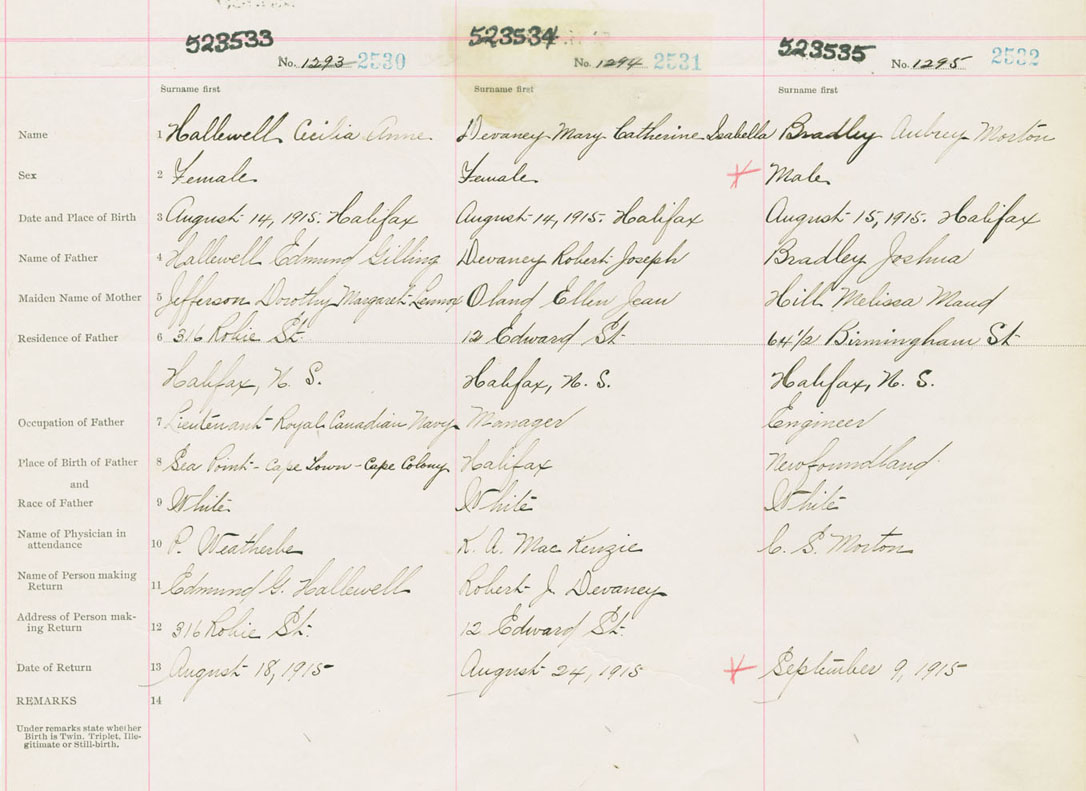 523533 523534 523535
No. 1293 2530 No. 1294 2531 No. 1295 2532
Surname first Surname first Surname first
Name 1 Hallewell Cecilia Anne Devaney Mary Catherine Isabella Bradley Aubrey Morton
Sex 2 Female Female Male
Date and Place of Birth 3 August 14, 1915. Halifax August 14, 1915. Halifax August 15, 1915. Halifax
Name of Father 4 Hallewell Edmund Gilling Devaney Robert Joseph Bradley Joshua
Maiden Name of Mother 5 Jefferson Dorothy Margaret Lennox Oland Ellen Jean Hill Melissa Maud
Residence of Father 6 316 Robie St. 12 Edward St 64 1/2 Birmingham St
Halifax, N. S. Halifax, N. S. Halifax, N. S.
Occupation of Father 7 Lieutenant Royal Canadian Navy Manager Engineer
Place of Birth of Father 8 Sea Point - Cape Town - Cape Colony Halifax Newfoundland
and
Race of Father 9 White White White
Name of Physician in
attendance 10 P. Weatherbe K. A. Mac Kenzie C. S. Morton
Name of Person making
Return 11 Edmund G. Hallewell Robert J Devaney
Address of Person mak-
ing Return 12 316 Robie St. 12 Edward St.
Date of Return 13 August 18, 1915 August 24, 1915 September 9, 1915
REMARKS 14
Under remarks state whether
Birth is Twin, Triplet, Ille-
gitimate or Still-birth.